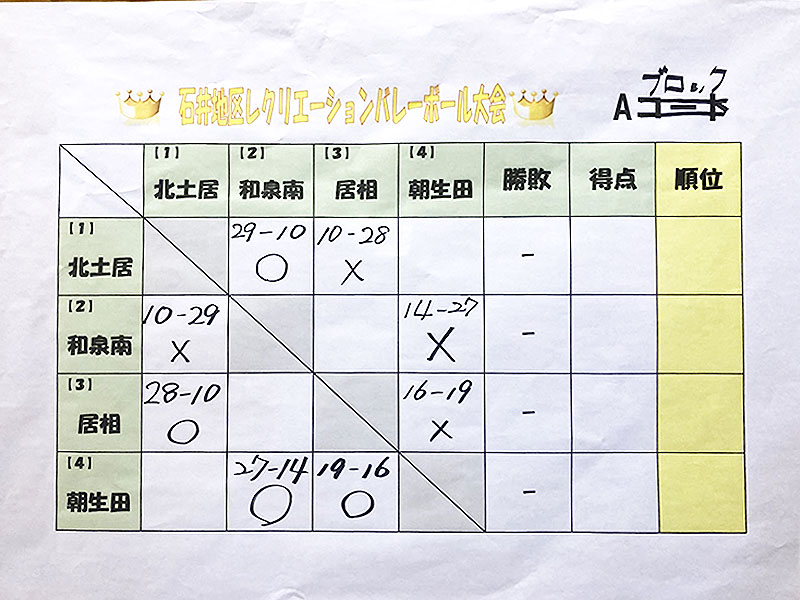 石井地区レクリエーションバレーボール大会
ブロック
A
[1] [2] [3] [4]
北土居 和泉南 居相 朝生田 勝敗 得点 順位
[1] 29-10 10-28
北土居 ○ × -
[2] 10-29 14-27
和泉南 × × -
[3] 28-10 16-19
居相 ○ × -
[4] 27-14 19-16
朝生田 ○ ○ -